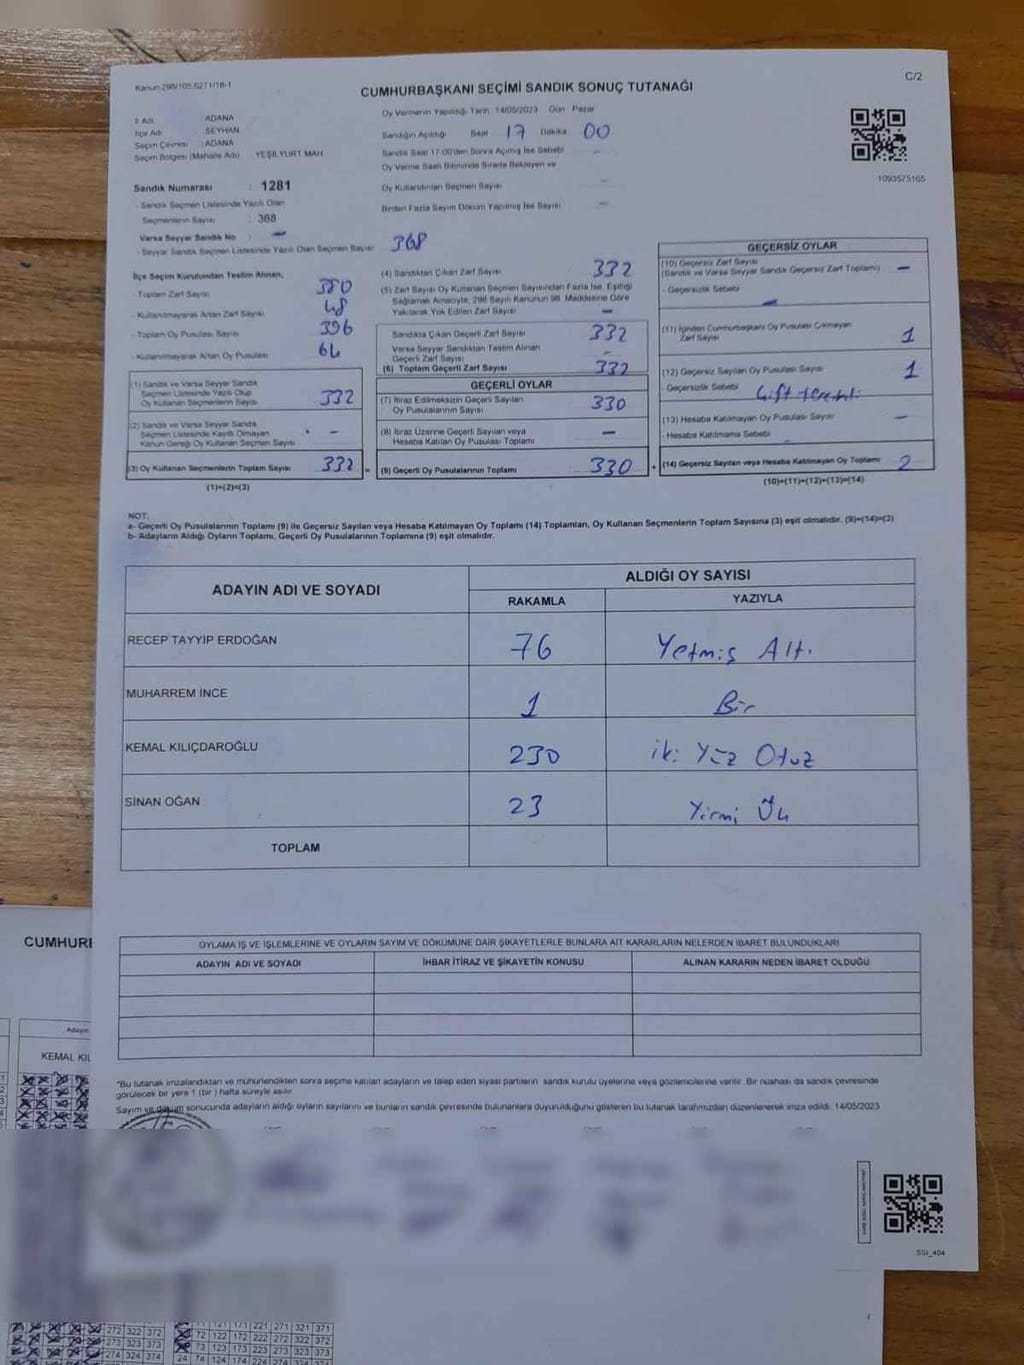 Kanun 298/105,6271/18-1
C/2
CUMHURBAŞKANI SEÇİMİ SANDIK SONUÇ TUTANAĞI
İl Adı : ADANA
İlçe Adı : SEYHAN
Seçim Çevresi : ADANA
Seçim Bölgesi (Mahalle Adı) YEŞİLYURT MAH
Sandık Numarası : 1281
- Sandık Seçmen Listesinde Yazılı Olan
Seçmenlerin Sayısı : 368
Varsa Seyyar Sandık No : -
- Seyyar Sandık Seçmen Listesinde Yazılı Olan Seçmen Sayısı 368
Oy Vermenin Yapıldığı Tarih : 14/05/2023 Gün : Pazar
Sandığın Açıldığı Saat 17 Dakika 00
Sandık Saat 17:00'den Sonra Açılmış İse Sebebi
Oy Verme Saati Bitiminde Sırada Bekleyen ve
Oy Kullandırılan Seçmen Sayısı -
Birden Fazla Sayım Döküm Yapılmış İse Sayısı -
1093575165
İlçe Seçim Kurulundan Teslim Alınan;
- Toplam Zarf Sayısı 380
- Kullanılmayarak Artan Zarf Sayısı 48
- Toplam Oy Pusulası Sayısı 396
- Kullanılmayarak Artan Oy Pusulası 64
(1) Sandık ve Varsa Seyyar Sandık
Seçmen Listesinde Yazılı Olup
Oy Kullanan Seçmenlerin Sayısı 332
(2) Sandık ve Varsa Seyyar Sandık
Seçmen Listesinde Kayıtlı Olmayan
Kanun Gereği Oy Kullanan Seçmen Sayısı -
(3) Oy Kullanan Seçmenlerin Toplam Sayısı 332 =
(1)+(2)=(3)
(4) Sandıktan Çıkan Zarf Sayısı 332
(5) Zarf Sayısı Oy Kullanan Seçmen Sayısından Fazla İse, Eşitliği
Sağlamak Amacıyla, 298 Sayılı Kanunun 98. Maddesine Göre
Yakılarak Yok Edilen Zarf Sayısı -
Sandıkta Çıkan Geçerli Zarf Sayısı 332
Varsa Seyyar Sandıktan Teslim Alınan
Geçerli Zarf Sayısı -
(6) Toplam Geçerli Zarf Sayısı 332
GEÇERLİ OYLAR
(7) İtiraz Edilmeksizin Geçerli Sayılan
Oy Pusulalarının Sayısı 330
(8) İtiraz Üzerine Geçerli Sayılan veya
Hesaba Katılan Oy Pusulası Toplamı -
(9) Geçerli Oy Pusulalarının Toplamı 330 +
GEÇERSİZ OYLAR
(10) Geçersiz Zarf Sayısı
(Sandık ve Varsa Seyyar Sandık Geçersiz Zarf Toplamı) -
- Geçersizlik Sebebi -
(11) İçinden Cumhurbaşkanı Oy Pusulası Çıkmayan
Zarf Sayısı 1
(12) Geçersiz Sayılan Oy Pusulası Sayısı 1
- Geçersizlik Sebebi Çift tercihli
(13) Hesaba Katılmayan Oy Pusulası Sayısı -
- Hesaba Katılmama Sebebi
(14) Geçersiz Sayılan veya Hesaba Katılmayan Oy Toplamı 2
(10)+(11)+(12)+(13)=(14)
NOT:
a- Geçerli Oy Pusulalarının Toplamı (9) ile Geçersiz Sayılan veya Hesaba Katılmayan Oy Toplamı (14) Toplamları, Oy Kullanan Seçmenlerin Toplam Sayısına (3) eşit olmalıdır. (9)+(14)=(3)
b- Adayların Aldığı Oyların Toplamı, Geçerli Oy Pusulalarının Toplamına (9) eşit olmalıdır.
ADAYIN ADI VE SOYADI
ALDIĞI OY SAYISI
RAKAMLA YAZIYLA
RECEP TAYYİP ERDOĞAN 76 Yetmiş Altı
MUHARREM İNCE 1 Bir
KEMAL KILIÇDAROĞLU 230 iki Yüz Otuz
SİNAN OĞAN 23 Yirmi Üç
TOPLAM
OYLAMA İŞ VE İŞLEMLERİNE VE OYLARIN SAYIM VE DÖKÜMÜNE DAİR ŞİKAYETLERLE BUNLARA AİT KARARLARIN NELERDEN İBARET BULUNDUKLARI
ADAYIN ADI VE SOYADI
İHBAR İTİRAZ VE ŞİKAYETİN KONUSU
ALINAN KARARIN NEDEN İBARET OLDUĞU
*Bu tutanak imzalandıktan ve mühürlendikten sonra seçime katılan adayların ve talep eden siyasi partilerin sandık kurulu üyelerine veya gözlemcilerine verilir. Bir nüshası da sandık çevresinde
görülecek bir yere 1 (bir) hafta süreyle asılır.
Sayım ve döküm sonucunda adayların aldığı oyların sayılarını ve bunların sandık çevresinde bulunanlara duyurulduğunu gösteren bu tutanak tarafımızdan düzenlenerek imza edildi. 14/05/2023
SGİ_404
CUMHURB
Adayın
KEMAL KIL
272 322 372
273 323 373
274 324 374
121 171 221 271 321 371
72 122 172 222 272 322 372
73 123 173 223 273 323 373
24 74 124 174 224 274 324 374